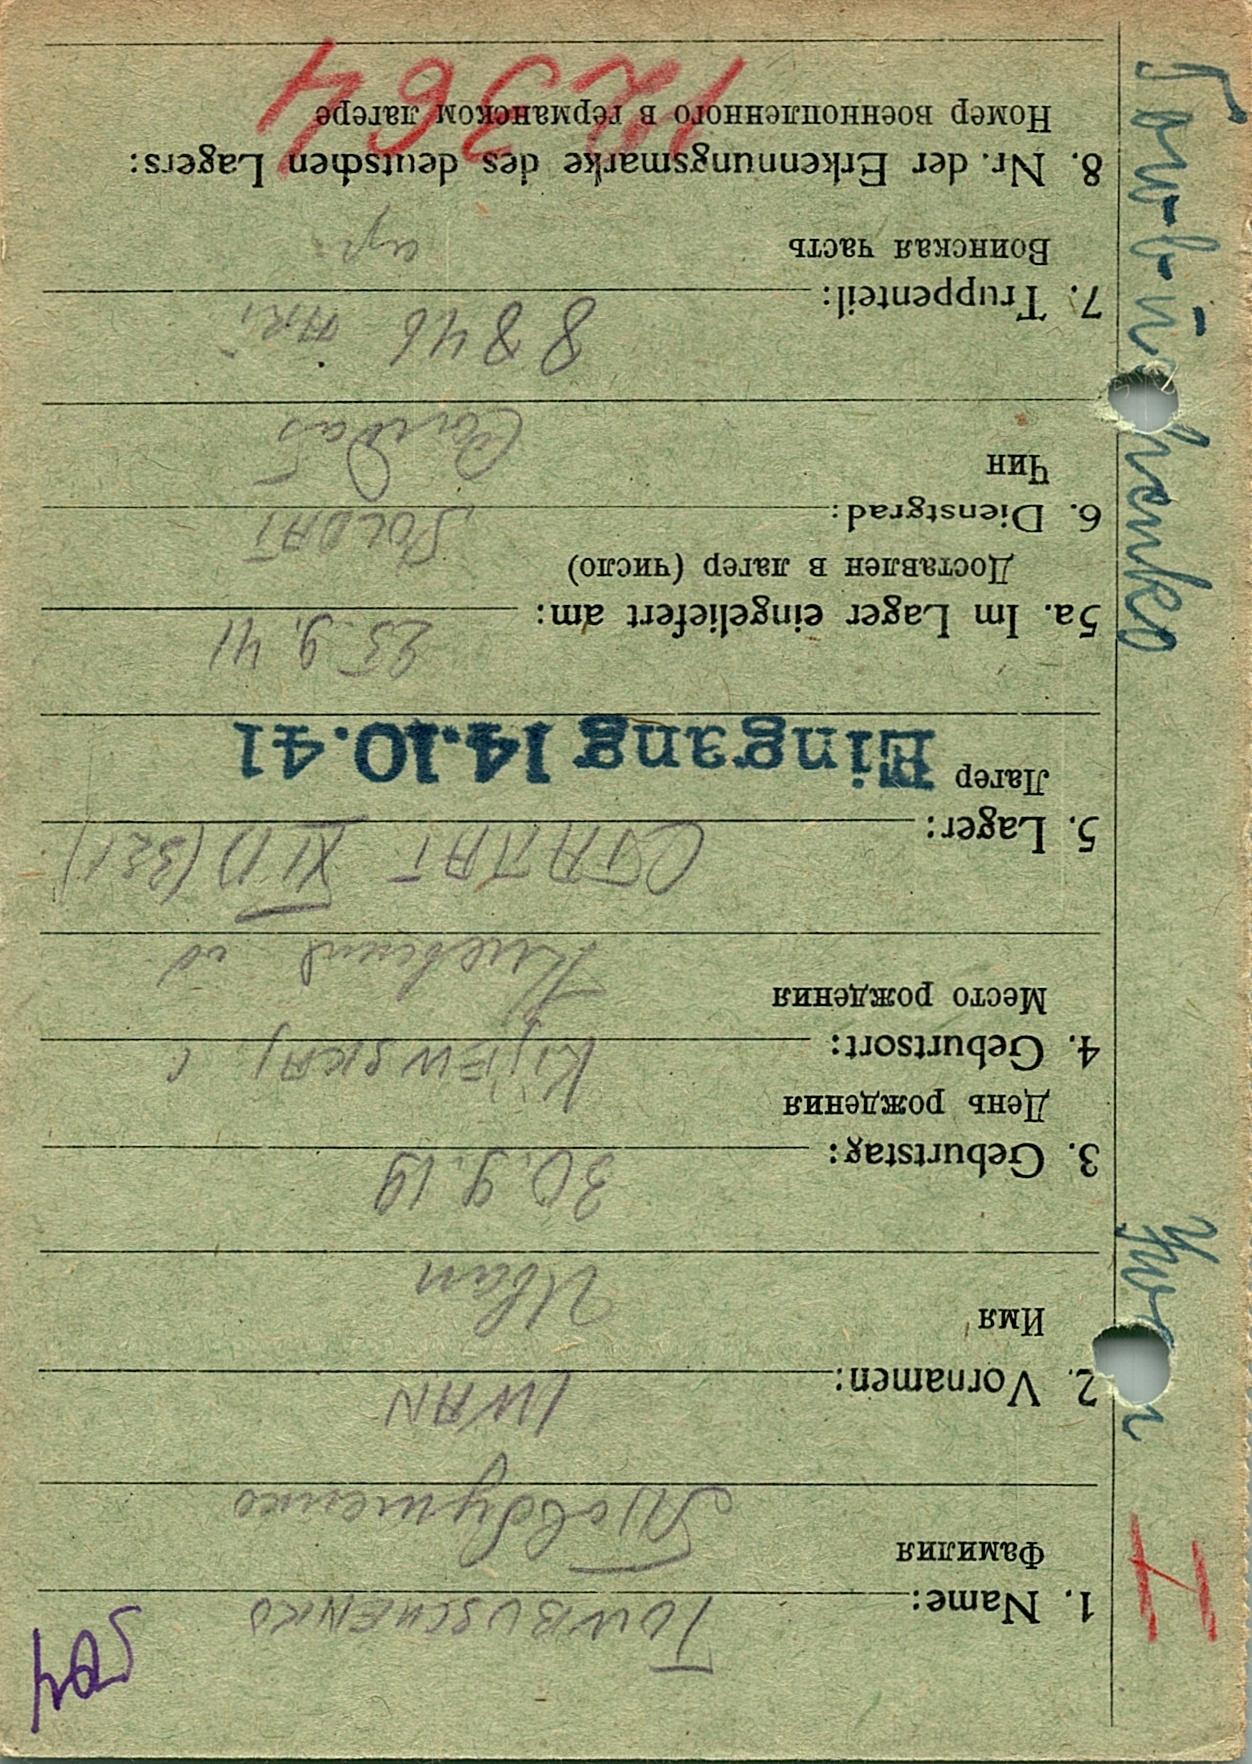 1. Name: TOWBUSCHENKO
Фамилия Товбушенко
2. Vornamen: IWAN
Имя Иван
3. Geburtstag: 30.9.19
День рождения
4. Geburtsort: KIJEWSKAJ
Место рождения
5. Lager: СТАЛАГ XI D (321)
Лагер Eingang 14.10.41
5a. Im Lager eingeliefert am: 25.9.41
Доставлен в лагер (число)
6. Dienstgrad: SOLDAT
Чин Солдат
7. Truppenteil: 8846 ARI
Воинская часть
8. Nr. der Erkennungsmarke des deutschen Lagers:
Номер военнопленного в германском лагере
12364
H